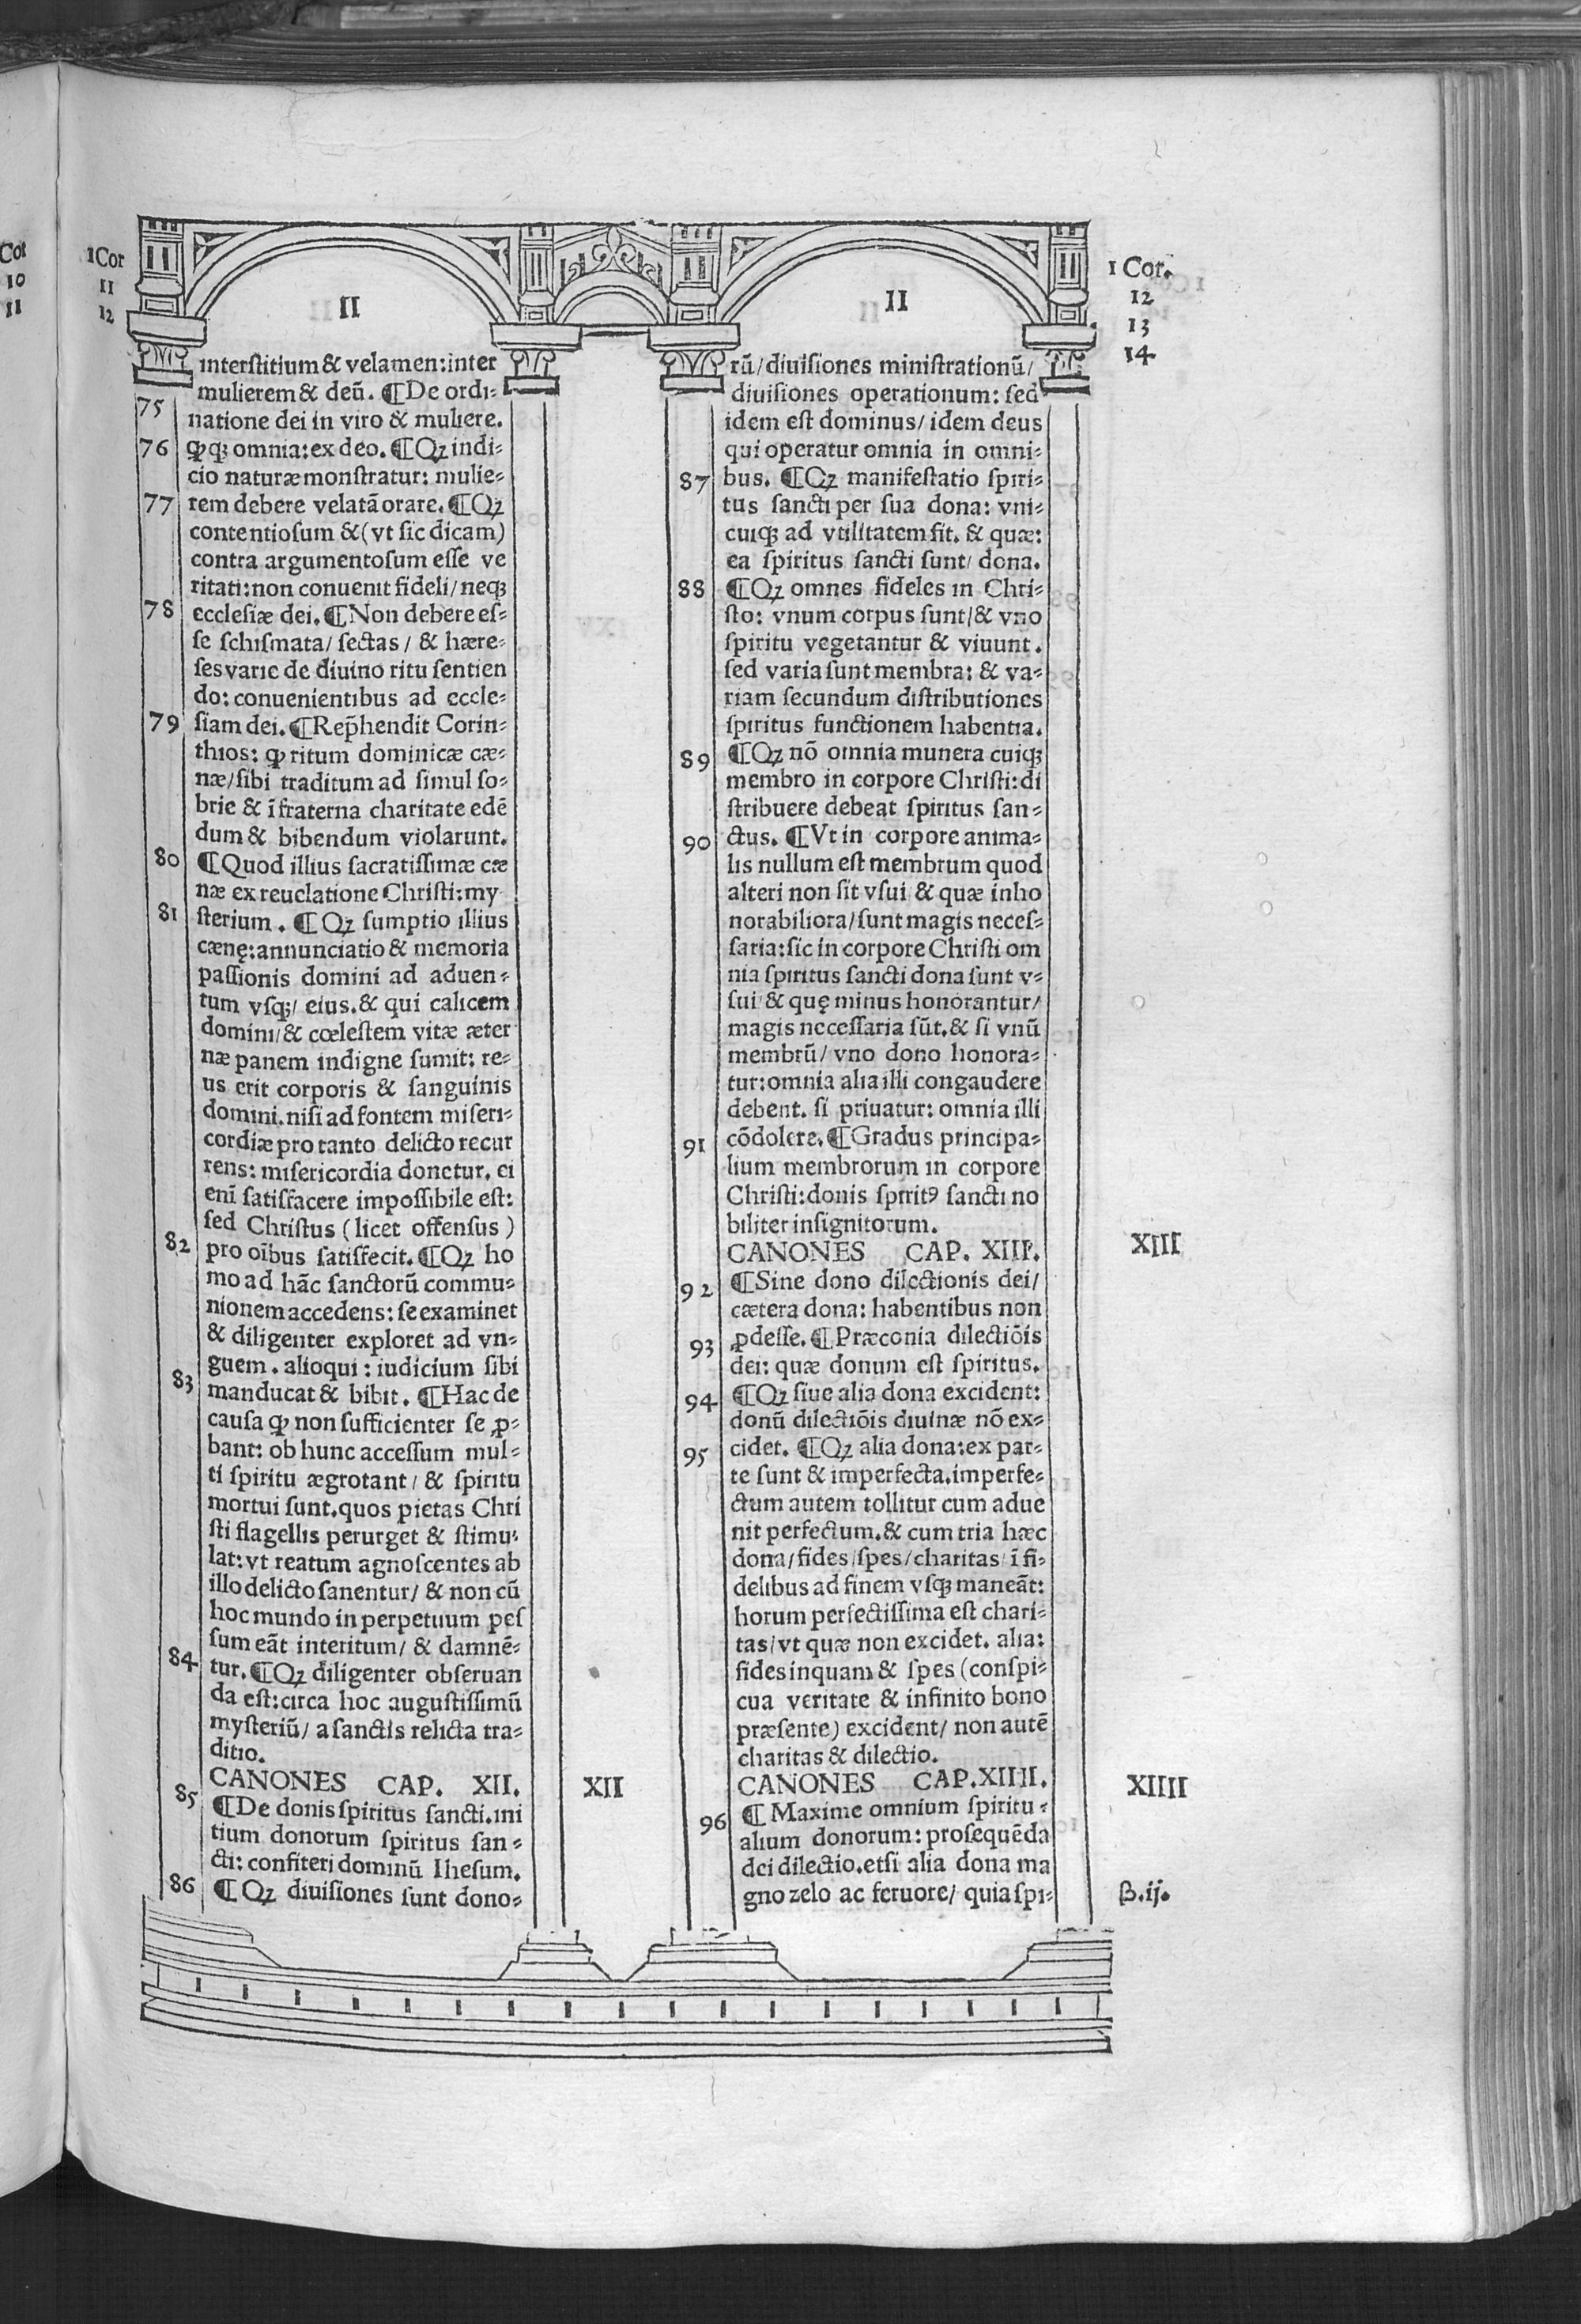 Cor
10
11
1Cor
11
12
II
interstitium & velamen: inter
mulierem & deũ. ¶De ordi-
75 natione dei in viro & muliere.
76 ꝙ omnia: ex deo. ¶Qꝫ indi-
cio naturæ monstratur: mulie-
77 rem debere velatã orare. ¶Qꝫ
contentiosum & (vt sic dicam)
contra argumentosum esse ve
ritati: non conuenit fideli/ neqꝫ
78 ecclesiæ dei. ¶Non debere es-
se schismata/ sectas/ & hære-
ses varie de diuino ritu sentien
do: conuenientibus ad eccle-
79 siam dei. ¶Rep̃hendit Corin-
thios: ꝙ ritum dominicæ cæ-
næ/ sibi traditum ad simul so-
brie & ĩ fraterna charitate edẽ
dum & bibendum violarunt.
80 ¶Quod illius sacratissimæ cæ
næ ex reuelatione Christi: my
81 sterium. ¶Qꝫ sumptio illius
cænę: annunciatio & memoria
passionis domini ad aduen-
tum vsqꝫ/ eius. & qui calicem
domini/ & cœlestem vitæ æter
næ panem indigne sumit: re-
us erit corporis & sanguinis
domini. nisi ad fontem miseri-
cordiæ pro tanto delicto recur
rens: misericordia donetur. ei
enĩ satisfacere impossibile est:
sed Christus (licet offensus)
82 pro oĩbus satisfecit. ¶Qꝫ ho
mo ad hãc sanctorũ commu-
nionem accedens: se examinet
& diligenter exploret ad vn-
guem. alioqui: iudicium sibi
83 manducat & bibit. ¶Hac de
causa ꝙ non sufficienter se ꝓ-
bant: ob hunc accessum mul-
ti spiritu ægrotant/ & spiritu
mortui sunt. quos pietas Chri
sti flagellis perurget & stimu-
lat: vt reatum agnoscentes ab
illo delicto sanentur/ & non cũ
hoc mundo in perpetuum pes
sum eãt interitum/ & damnẽ-
84 tur. ¶Qꝫ diligenter obseruan
da est: circa hoc augustissimũ
mysteriũ/ a sanctis relicta tra-
ditio.
CANONES CAP. XII. XII
85 ¶De donis spiritus sancti. ini
tium donorum spiritus san-
cti: confiteri dominũ Ihesum.
86 ¶Qꝫ diuisiones sunt dono-
1 Cor.
12
13
14
II
rũ/ diuisiones ministrationũ/
diuisiones operationum: sed
idem est dominus/ idem deus
qui operatur omnia in omni-
87 bus. ¶Qꝫ manifestatio spiri-
tus sancti per sua dona: vni-
cuiqꝫ ad vtilitatem fit. & quæ:
ea spiritus sancti sunt/ dona.
88 ¶Qꝫ omnes fideles in Chri-
sto: vnum corpus sunt/ & vno
spiritu vegetantur & viuunt.
sed varia sunt membra: & va-
riam secundum distributiones
spiritus functionem habentia.
89 ¶Qꝫ nõ omnia munera cuiqꝫ
membro in corpore Christi: di
stribuere debeat spiritus san-
90 ctus. ¶Vt in corpore anima-
lis nullum est membrum quod
alteri non sit vsui & quæ inho
norabiliora/ sunt magis neces-
saria: sic in corpore Christi om
nia spiritus sancti dona sunt v-
sui/ & quę minus honorantur/
magis necessaria sũt. & si vnũ
membrũ/ vno dono honora-
tur: omnia alia illi congaudere
debent. si priuatur: omnia illi
91 cõdolere. ¶Gradus principa-
lium membrorum in corpore
Christi: donis spirit⁹ sancti no
biliter insignitorum.
CANONES CAP. XIII. XIII
92 ¶Sine dono dilectionis dei/
cætera dona: habentibus non
93 ꝓdesse. ¶Præconia dilectiõis
dei: quæ donum est spiritus.
94 ¶Qꝫ siue alia dona excident:
donũ dilectiõis diuinæ nõ ex-
95 cidet. ¶Qꝫ alia dona: ex par-
te sunt & imperfecta. imperfe-
ctum autem tollitur cum adue
nit perfectum. & cum tria hæc
dona/ fides/ spes/ charitas/ ĩ fi-
delibus ad finem vsqꝫ maneãt:
horum perfectissima est chari-
tas/ vt quæ non excidet. alia:
fides inquam & spes (conspi-
cua veritate & infinito bono
præsente) excident/ non autẽ
charitas & dilectio.
CANONES CAP. XIIII. XIIII
96 ¶Maxime omnium spiritu-
alium donorum: prosequẽda
dei dilectio. etsi alia dona ma
gno zelo ac feruore/ quia spi-
β.ij.